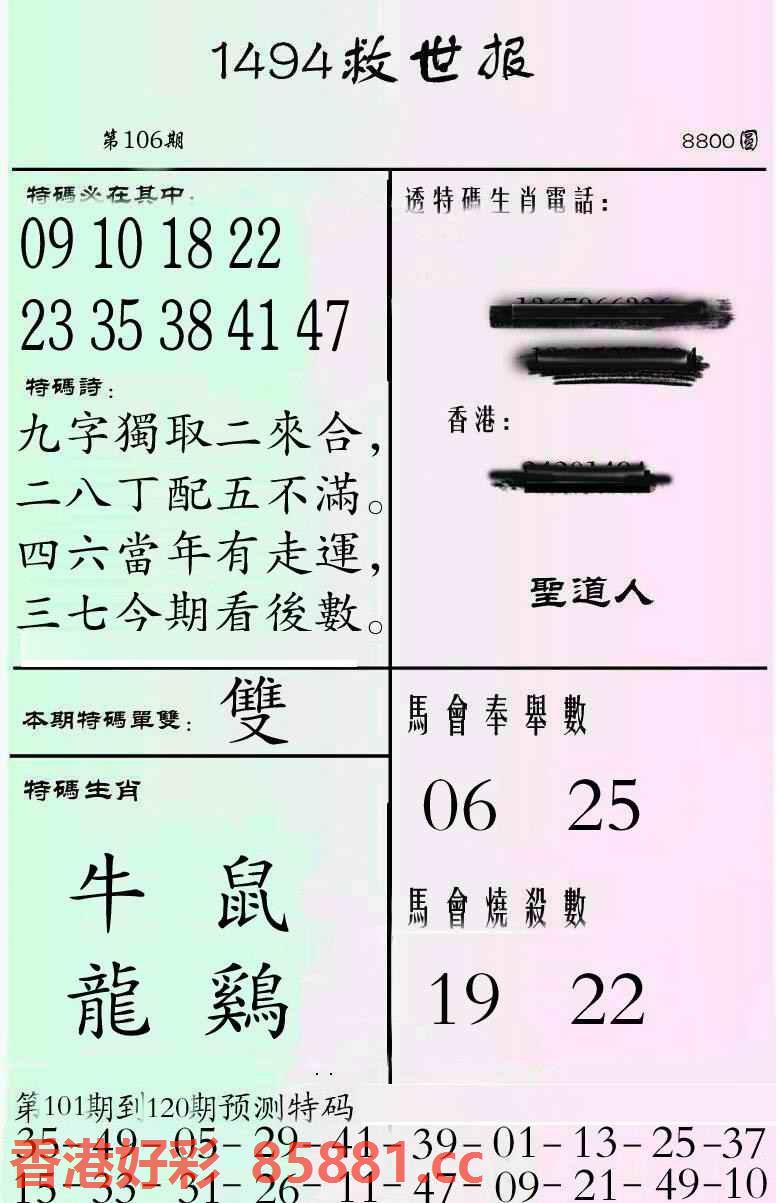 1494救世报
第106期
8800圓
特碼必在其中:
09 10 18 22
23 35 38 41 47
特碼詩:
九字獨取二來合,
二八丁配五不滿。
四六當年有走運,
三七今期看後數。
本期特碼單雙: 雙
特碼生肖
牛 鼠
龍 鷄
透特碼生肖電話:
香港:
聖道人
馬會奉舉數
06 25
馬會燒殺數
19 22
第101期到120期预测特码
35-49-05-29-41-39-01-13-25-37
15-33-31-26-11-47-09-21-49-10
香港好彩 85881.cc